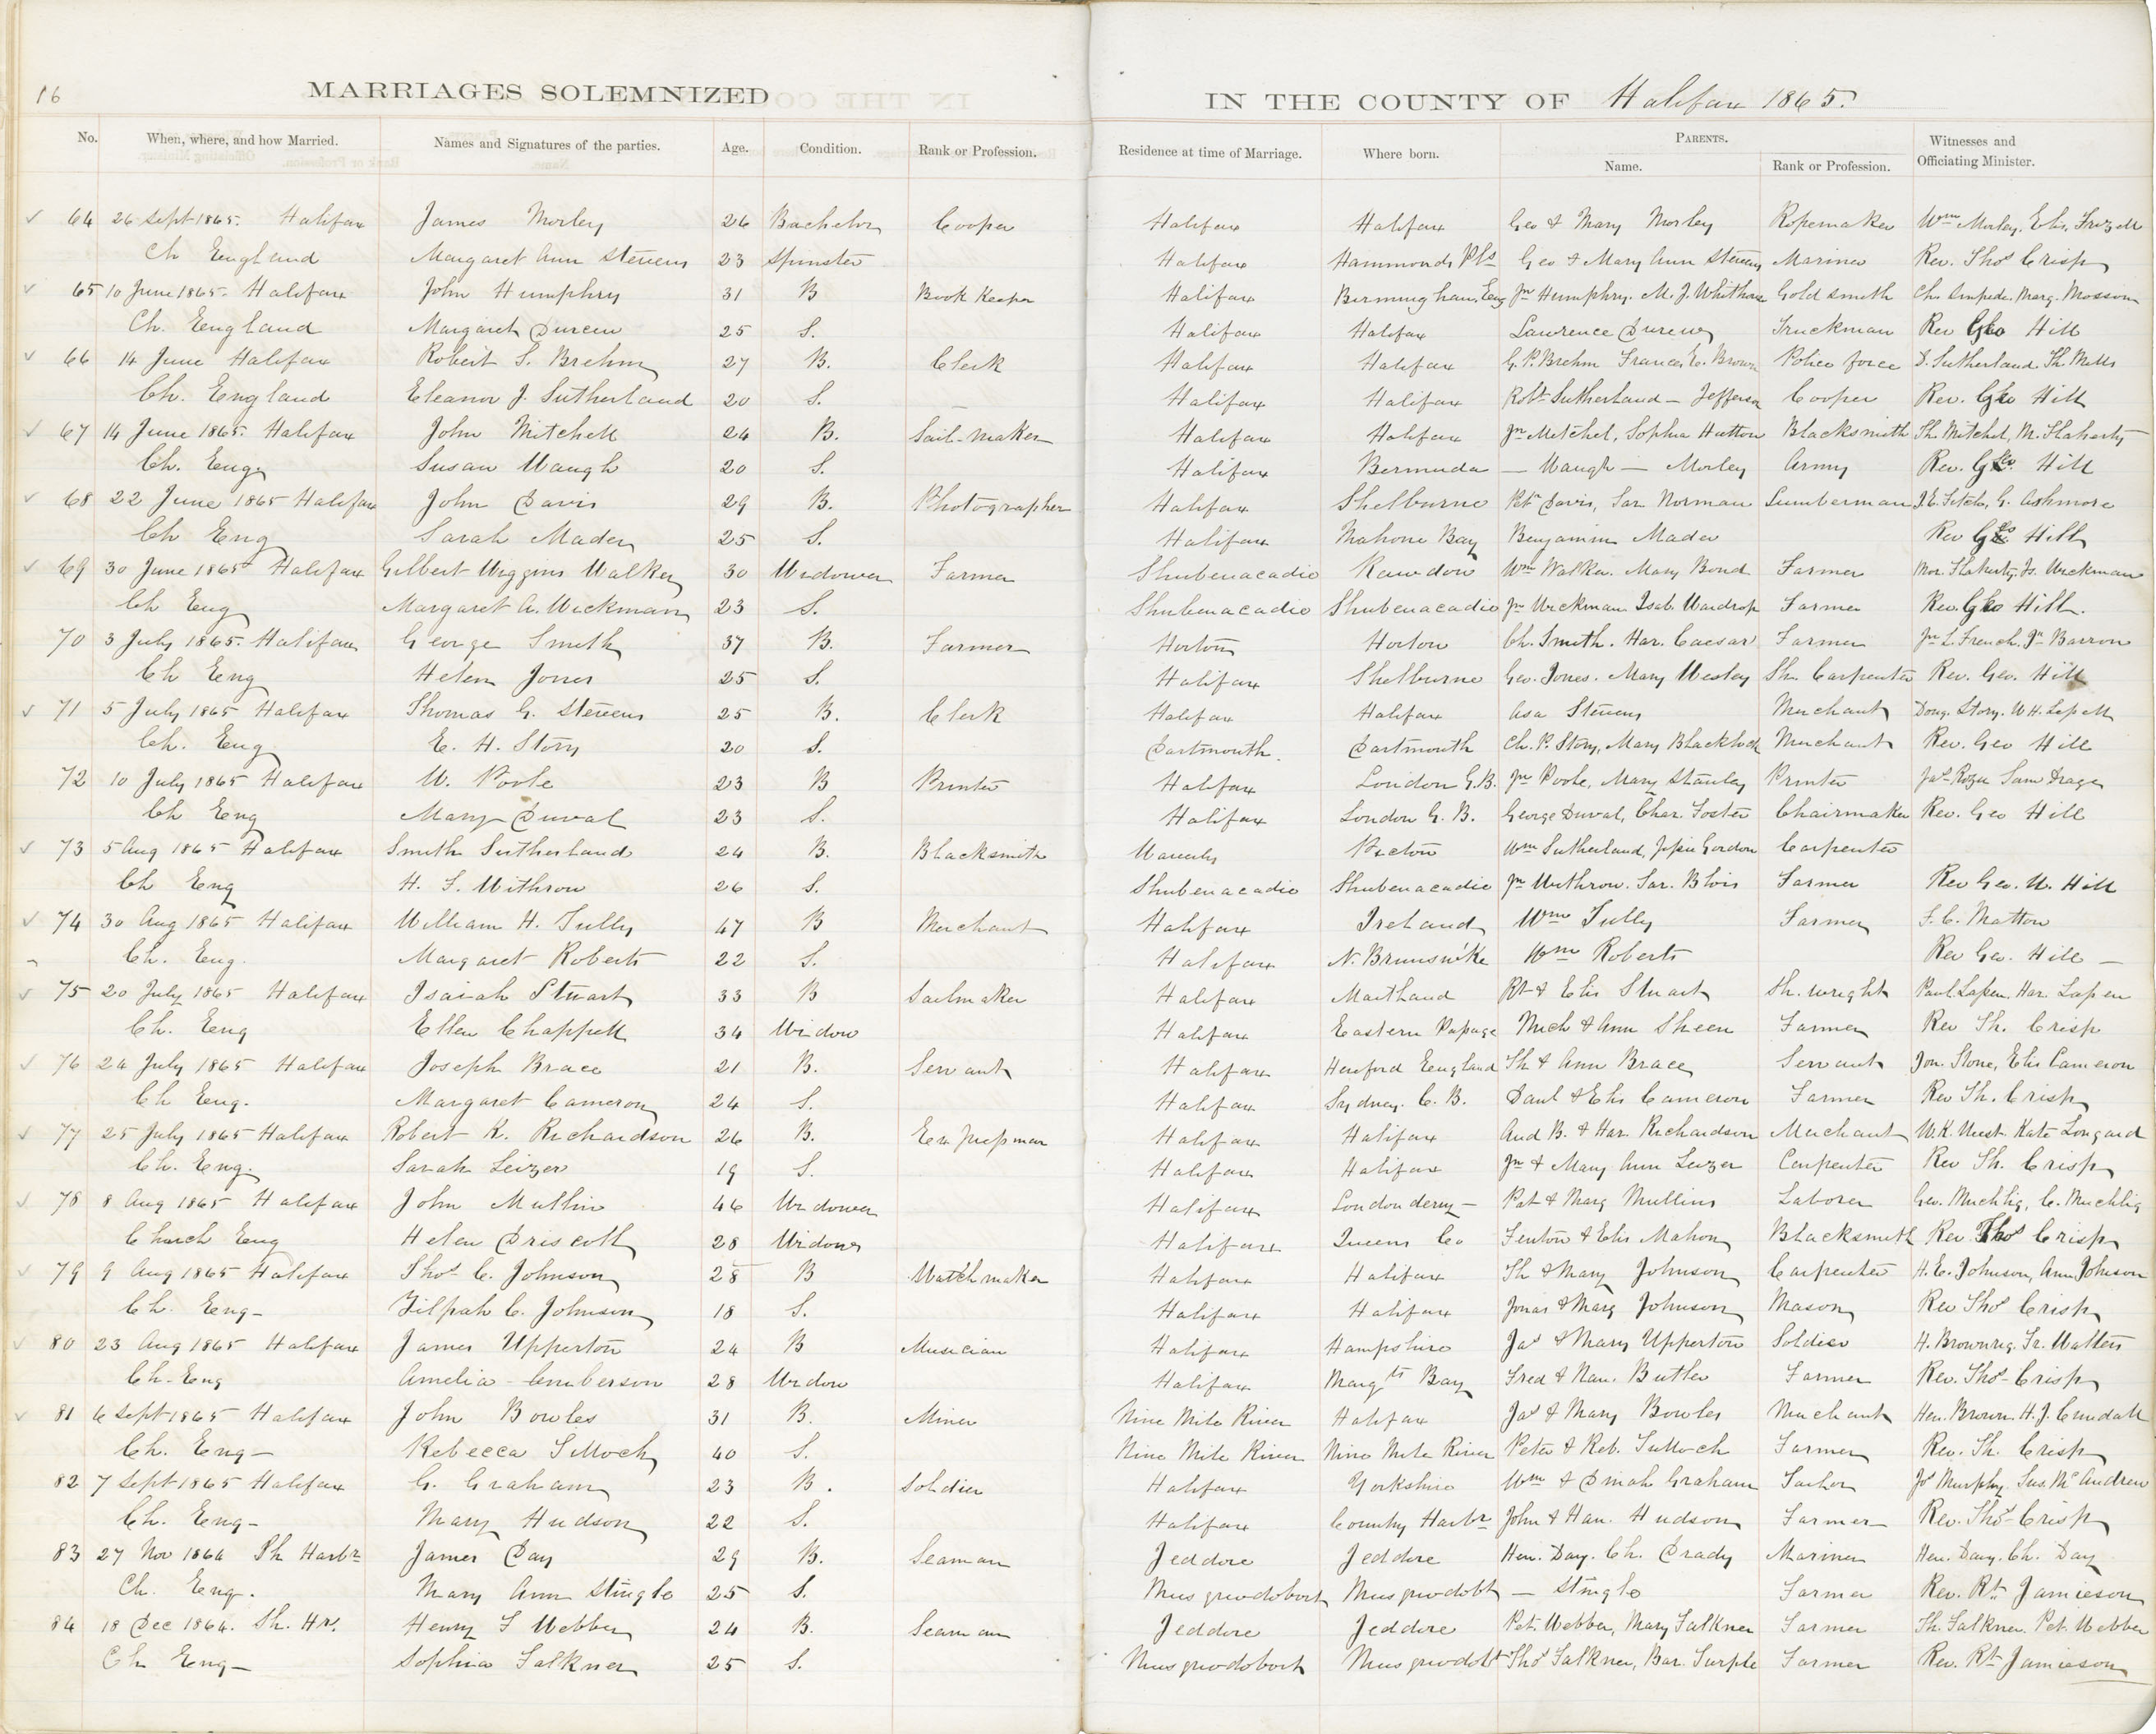 16
MARRIAGES SOLEMNIZED IN THE COUNTY OF Halifax 1865.
No. When, where, and how Married. Names and Signatures of the parties. Age. Condition. Rank or Profession. Residence at time of Marriage. Where born. PARENTS. Name. Rank or Profession. Witnesses and Officiating Minister.
64 26 Sept 1865. Halifax James Morley 26 Bachelor Cooper Halifax Halifax Geo & Mary Morley Ropemaker Wm Morley, Eliz
Ch England Margaret Ann Stevens 23 Spinster Halifax Hammonds Pls Geo & Mary Ann Stevens Mariner Rev. Thos Crisp
65 10 June 1865. Halifax John Humphry 31 B Book Keeper Halifax Birmingham, Eng Jn Humphry. M. J. Whithouse Goldsmith Marg. Mossom
Ch. England Margaret Dureen 25 S. Halifax Halifax Lawrence Dureen Truckman Rev Geo Hill
66 14 June Halifax Robert S. Brehm 27 B. Clerk Halifax Halifax G. P. Brehm Frances E. Brown Police force D. Sutherland. Th. Mills
Ch. England Eleanor J. Sutherland 20 S. Halifax Halifax Robt Sutherland — Jefferson Cooper Rev. Geo Hill
67 14 June 1865. Halifax John Mitchell 24 B. Sail-maker Halifax Halifax Jn Metchel, Sophia Hutton Blacksmith Th. Mitchel, M. Flaherty
Ch. Eng Susan Waugh 20 S. Halifax Bermuda — Waugh — Morley Army Rev. Geo Hill
68 22 June 1865 Halifax John Davis 29 B. Photographer Halifax Shelburne Davis, Sar Norman Lumberman G. Ashmore
Ch Eng Sarah Mader 25 S. Halifax Mahone Bay Benjamin Mader Rev Geo Hill
69 30 June 1865 Halifax Gilbert Wiggins Walker 30 Widower Farmer Shubenacadie Rawdon Wm Walker. Mary Bond Farmer Mor. Flaherty. Is. Wickman
Ch Eng Margaret A. Wickman 23 S. Shubenacadie Shubenacadie Jn Wickman Isab. Wardrop Farmer Rev. Geo Hill.
70 3 July 1865. Halifax George Smith 37 B. Farmer Horton Horton Ch. Smith. Har. Caesar Farmer Jn L. French. Jn Barron
Ch Eng Helen Jones 25 S. Halifax Shelburne Geo. Jones. Mary Wesley Sh. Carpenter Rev. Geo. Hill
71 5 July 1865 Halifax Thomas G. Stevens 25 B. Clerk Halifax Halifax Asa Stevens Merchant Doug. Story. W H.
Ch. Eng E. H. Story 20 S. Dartmouth. Dartmouth Ch. P. Story, Mary Blacklock Merchant Rev. Geo Hill
72 10 July 1865 Halifax W. Poole 23 B Printer Halifax London G.B. Jn Poole, Mary Stanley Printer Sam Drage
Ch Eng Mary Duval 23 S. Halifax London G. B. George Duval, Char. Foster Chairmaker Rev. Geo Hill
73 5 Aug 1865 Halifax Smith Sutherland 24 B. Blacksmith Waverly Pictou Wm Sutherland, Jessie Gordon Carpenter
Ch Eng H. S. Withrow 26 S. Shubenacadie Shubenacadie Jn Withrow. Sar. Blois Farmer Rev Geo. W. Hill
74 30 Aug 1865 Halifax William H. Tully 47 B Merchant Halifax Ireland Wm Tully Farmer F. C. Matton
Ch. Eng. Margaret Roberts 22 S. Halifax N. Brunswike Wm Roberts Rev Geo. Hill —
75 20 July 1865 Halifax Isaiah Stuart 33 B Sailmaker Halifax Maitland Rt & Elis Stuart Sh. wright Paul Lapen. Har. Lapen
Ch. Eng Ellen Chappell 34 Widow Halifax Eastern Papage Mich & Ann Sheen Farmer Rev Th. Crisp
76 24 July 1865 Halifax Joseph Brace 21 B. Servant Halifax Hereford England Th & Ann Brace Servant Jon. Stone, Elis Cameron
Ch Eng. Margaret Cameron 24 S. Halifax Sydney. C. B. Danl & Elis Cameron Farmer Rev Th. Crisp
77 25 July 1865 Halifax Robert K. Richardson 26 B. Ex pressman Halifax Halifax And B. & Har. Richardson Merchant W. K. West Kate Longard
Ch. Eng. Sarah Leizer 19 S. Halifax Halifax Jn & Mary Ann Leizer Carpenter Rev Th. Crisp
78 8 Aug 1865 Halifax John Mullin 46 Widower Halifax Londonderry — Pat & Marg Mullins Laborer Geo. Muchlig, C. Muchlig
Church Eng Helen Driscoll 28 Widow Halifax Queens Co Fenton & Elis Mahon Blacksmith Rev Thos Crisp
79 9 Aug 1865 Halifax Thos C. Johnson 28 B Watchmaker Halifax Halifax Th & Mary Johnson Carpenter H. E. Johnson, Ann Johnson
Ch. Eng — Zilpah C. Johnson 18 S. Halifax Halifax Jonas & Marg Johnson Mason Rev Thos Crisp
80 23 Aug 1865 Halifax James Upperton 24 B Musician Halifax Hampshire Jas & Mary Upperton Soldier H. Brownrig. Fr. Walters
Ch. Eng Amelia Amberson 28 Widow Halifax Margts Bay Fred & Nan. Butler Farmer Rev. Thos Crisp
81 6 Sept 1865 Halifax John Bowles 31 B. Miner Nine Mile River Halifax Jas & Mary Bowles Merchant Hen. Brown. H. J.
Ch. Eng — Rebecca Tulloch 40 S. Nine Mile River Nine Mile River Peter & Reb. Tulloch Farmer Rev. Th. Crisp
82 7 Sept 1865 Halifax G. Graham 23 B. Soldier Halifax Yorkshire Wm & Dinah Graham Tailor Js Murphy. Sus. McAndrew
Ch. Eng — Mary Hudson 22 S. Halifax Country Harbr John & Han. Hudson Farmer Rev. Thos Crisp
83 27 Nov 1864 Sh Harbr James Day 29 B. Seaman Jeddore Jeddore Hen. Day. Ch. Drady Mariner Hen. Day. Ch. Day
Ch. Eng. Mary Ann Stingle 25 S. Musquodobort Musquodobt — Stingle Farmer Rev. Rt Jamieson
84 18 Dec 1864. Sh. Hr. Henry T Webber 24 B. Seaman Jeddore Jeddore Pet. Webber, Mary Falkner Farmer Th. Falkner. Pet. Webber
Ch Eng — Sophia Falkner 25 S. Musquodobort Musquodobt Thos Falkner, Bar. Turple Farmer Rev. Rt Jamieson